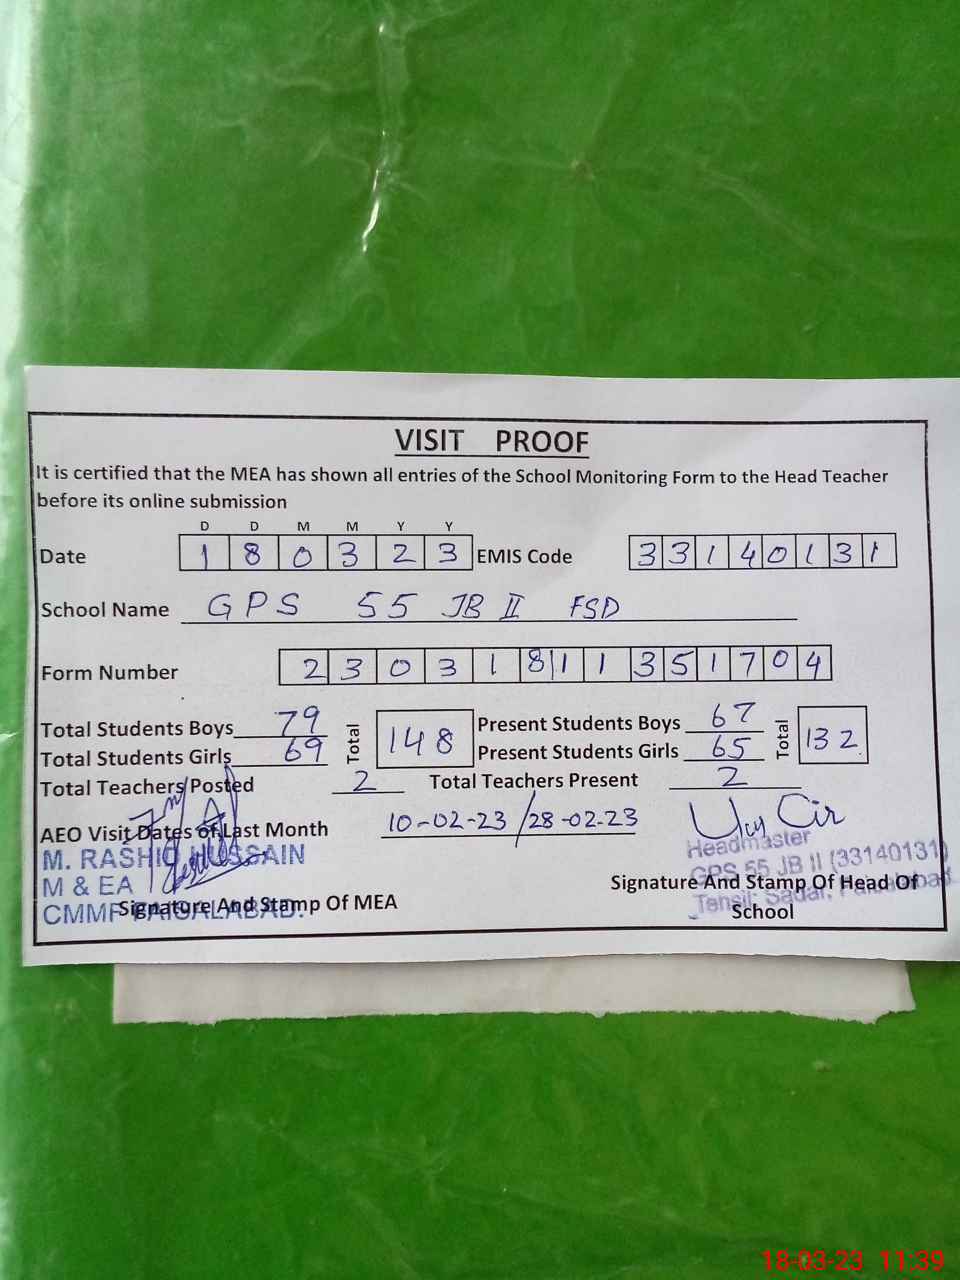 VISIT PROOF
It is certified that the MEA has shown all entries of the School Monitoring Form to the Head Teacher
before its online submission
D D M M Y Y
Date 1 8 0 3 2 3 EMIS Code 3 3 1 4 0 1 3 1
School Name GPS 55 JB II FSD
Form Number 2 3 0 3 1 8 1 1 3 5 1 7 0 4
Total Students Boys 79 Total 148 Present Students Boys 67 Total 132
Total Students Girls 69 Present Students Girls 65
Total Teachers Posted 2 Total Teachers Present 2
AEO Visit Dates of Last Month 10-02-23/28-02-23
M. RASHID HUSSAIN
M & EA
CMMF FAISALABAD.
Signature And Stamp Of MEA
Headmaster
GPS 55 JB II (33140131)
Tehsil: Sadar, Faisalabad
Signature And Stamp Of Head Of
School
18-03-23 11:39